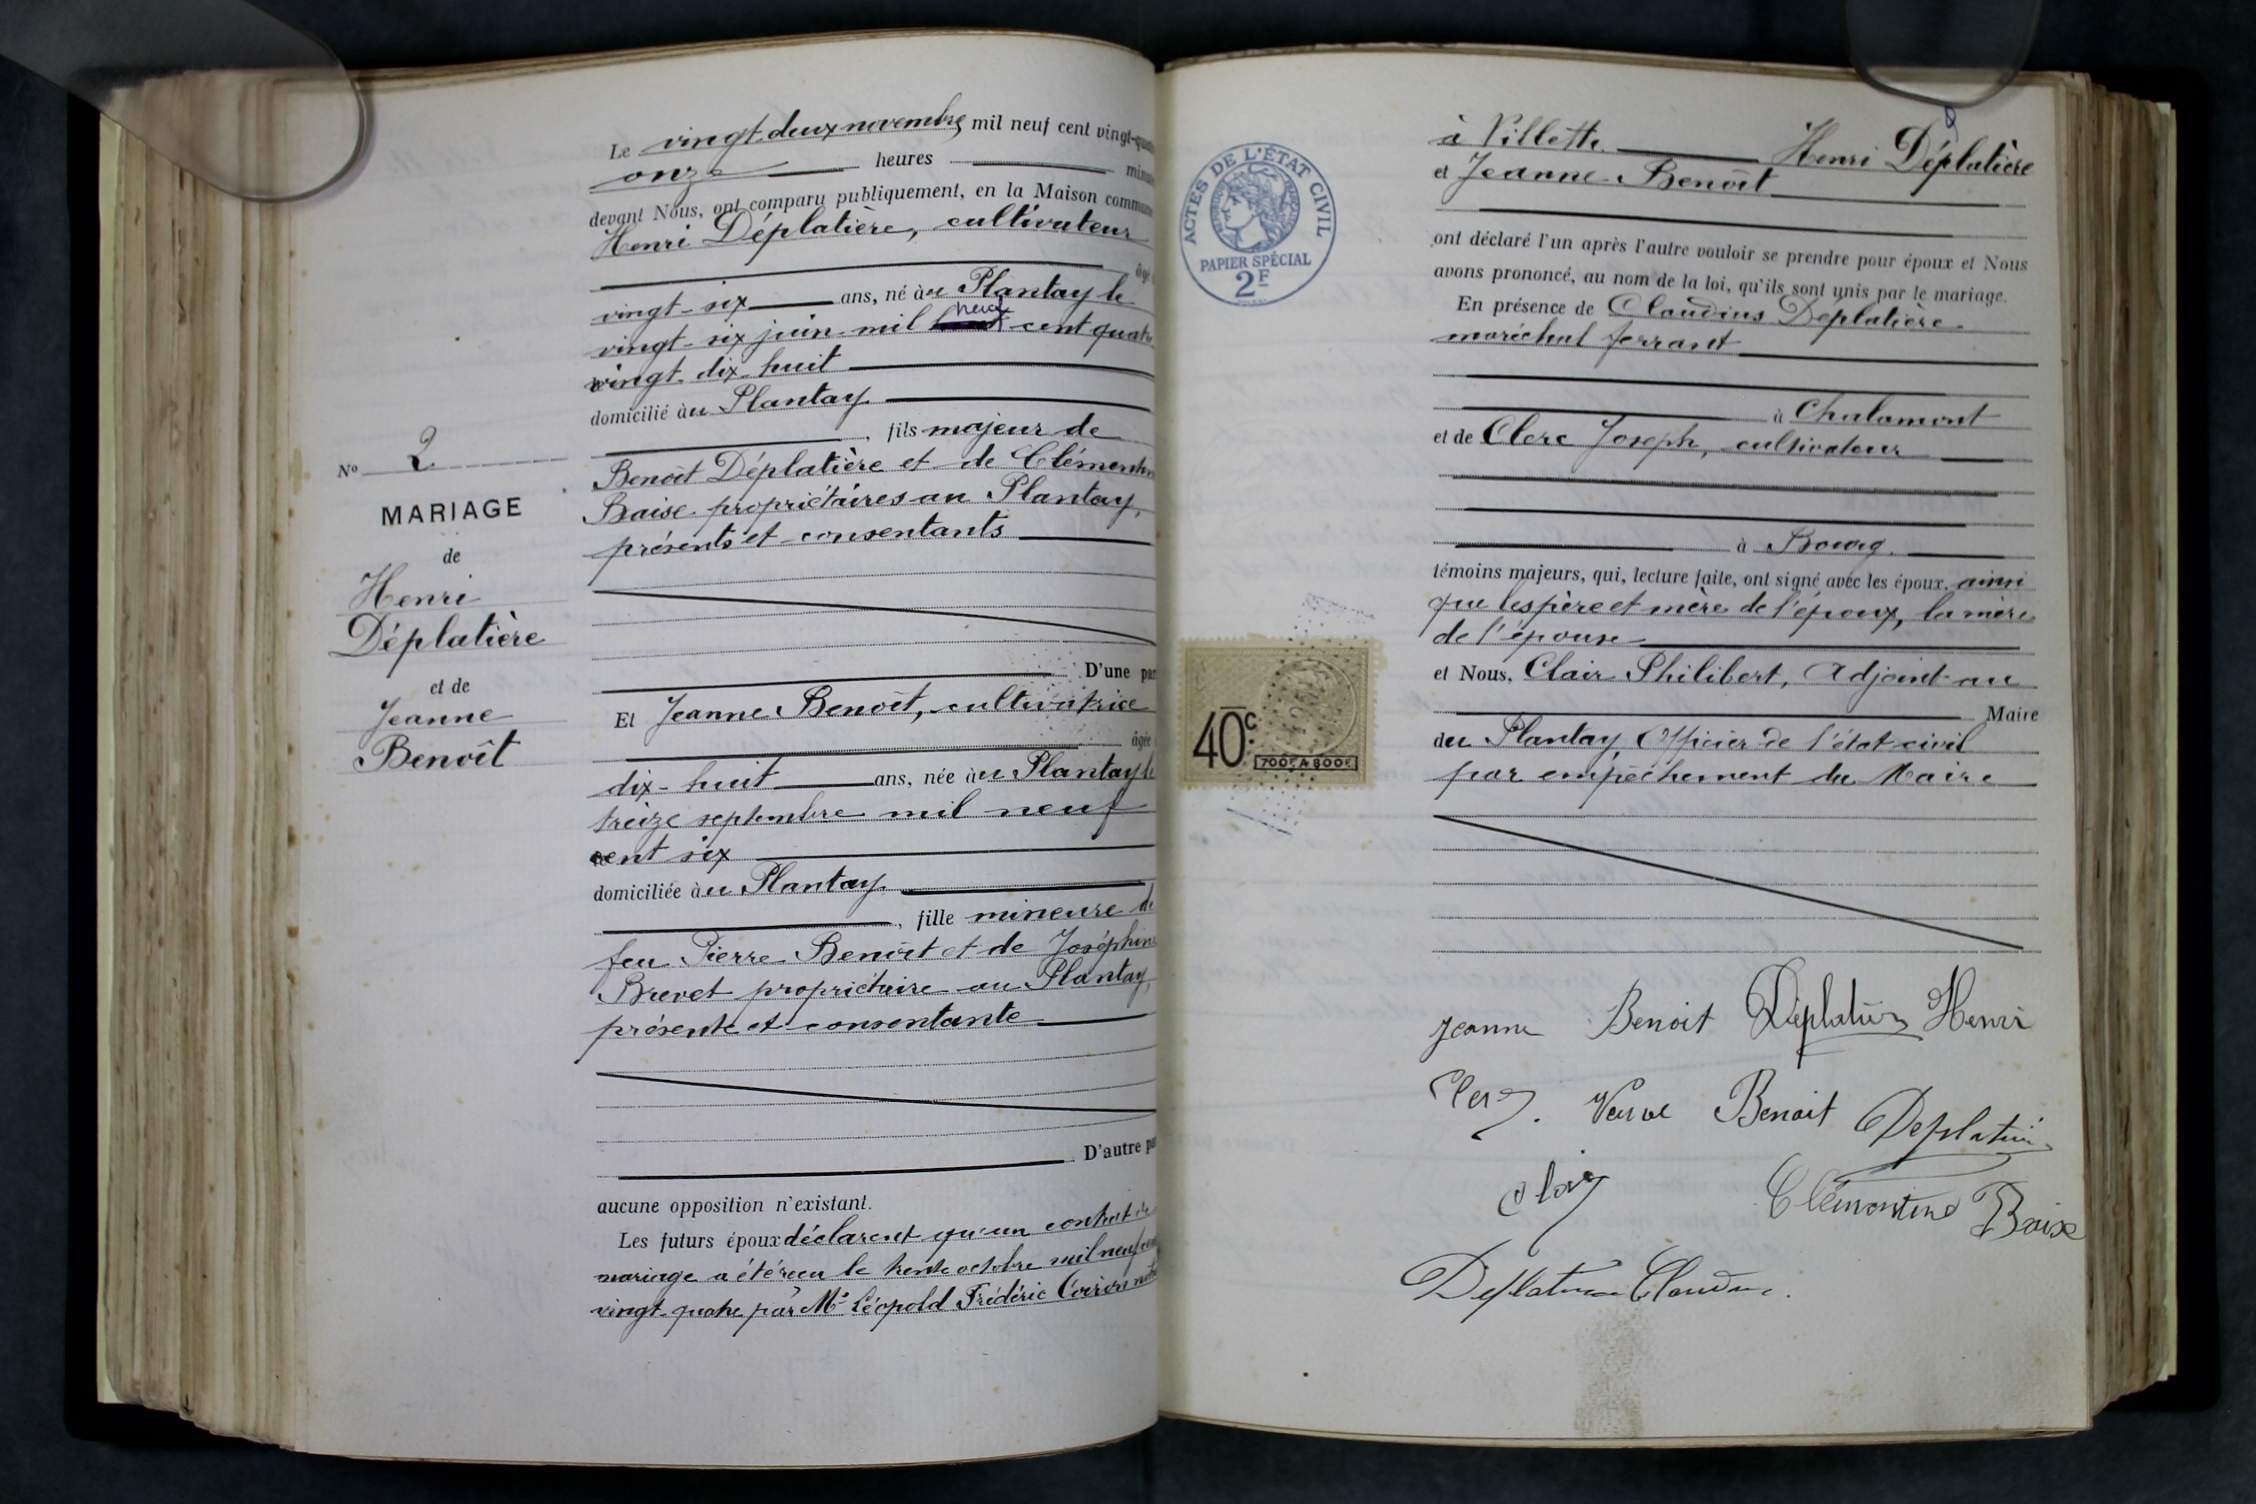 Le vingt deux novembre mil neuf cent vingt-quatre
onze heures minutes
devant Nous, ont comparu publiquement, en la Maison commune
Henri Déplatière, cultivateur
âgé
vingt-six ans, né au Plantay le
neuf
vingt-six juin mil cent quatre
vingt-dix huit
domicilié au Plantay
, fils majeur de
Benoît Déplatière et de Clémentine
Baise propriétaires au Plantay,
présents et consentants
D'une part
Et Jeanne Benoît, cultivatrice
âgée
dix-huit ans, née au Plantay le
treize septembre mil neuf
cent six
domiciliée au Plantay
, fille mineure de
feu Pierre Benoît et de Joséphine
Brevet propriétaire au Plantay,
présente et consentante
D'autre part
aucune opposition n'existant.
Les futurs époux déclarent qu'un contrat de
mariage a été reçu le trente octobre mil neuf cent
vingt-quatre par Me Léopold Frédéric
No 2
MARIAGE
de
Henri
Déplatière
et de
Jeanne
Benoît
ACTES DE L'ÉTAT CIVIL
PAPIER SPÉCIAL
2F
40c
700F A 800F
à Villette Henri Déplatière
et Jeanne Benoît
ont déclaré l'un après l'autre vouloir se prendre pour époux et Nous
avons prononcé, au nom de la loi, qu'ils sont unis par le mariage.
En présence de Claudius Déplatière
maréchal ferrant
à Chalamont
et de Clerc Joseph, cultivateur
à Bourg
témoins majeurs, qui, lecture faite, ont signé avec les époux, ainsi
que les père et mère de l'époux, la mère
de l'épouse
et Nous, Clair Philibert, Adjoint au
Maire
du Plantay, Officier de l'état civil
par empêchement du Maire
Jeanne Benoit Déplatière Henri
Clerc J. Veuve Benoit Deplatière
Clair Clémentine Baise
Deplatière Claudius